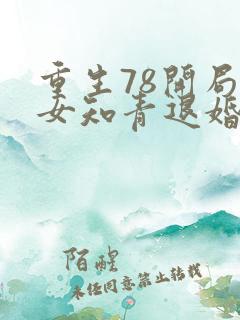 重生78開局
女知青退婚
陌醒
未经同意禁止转载